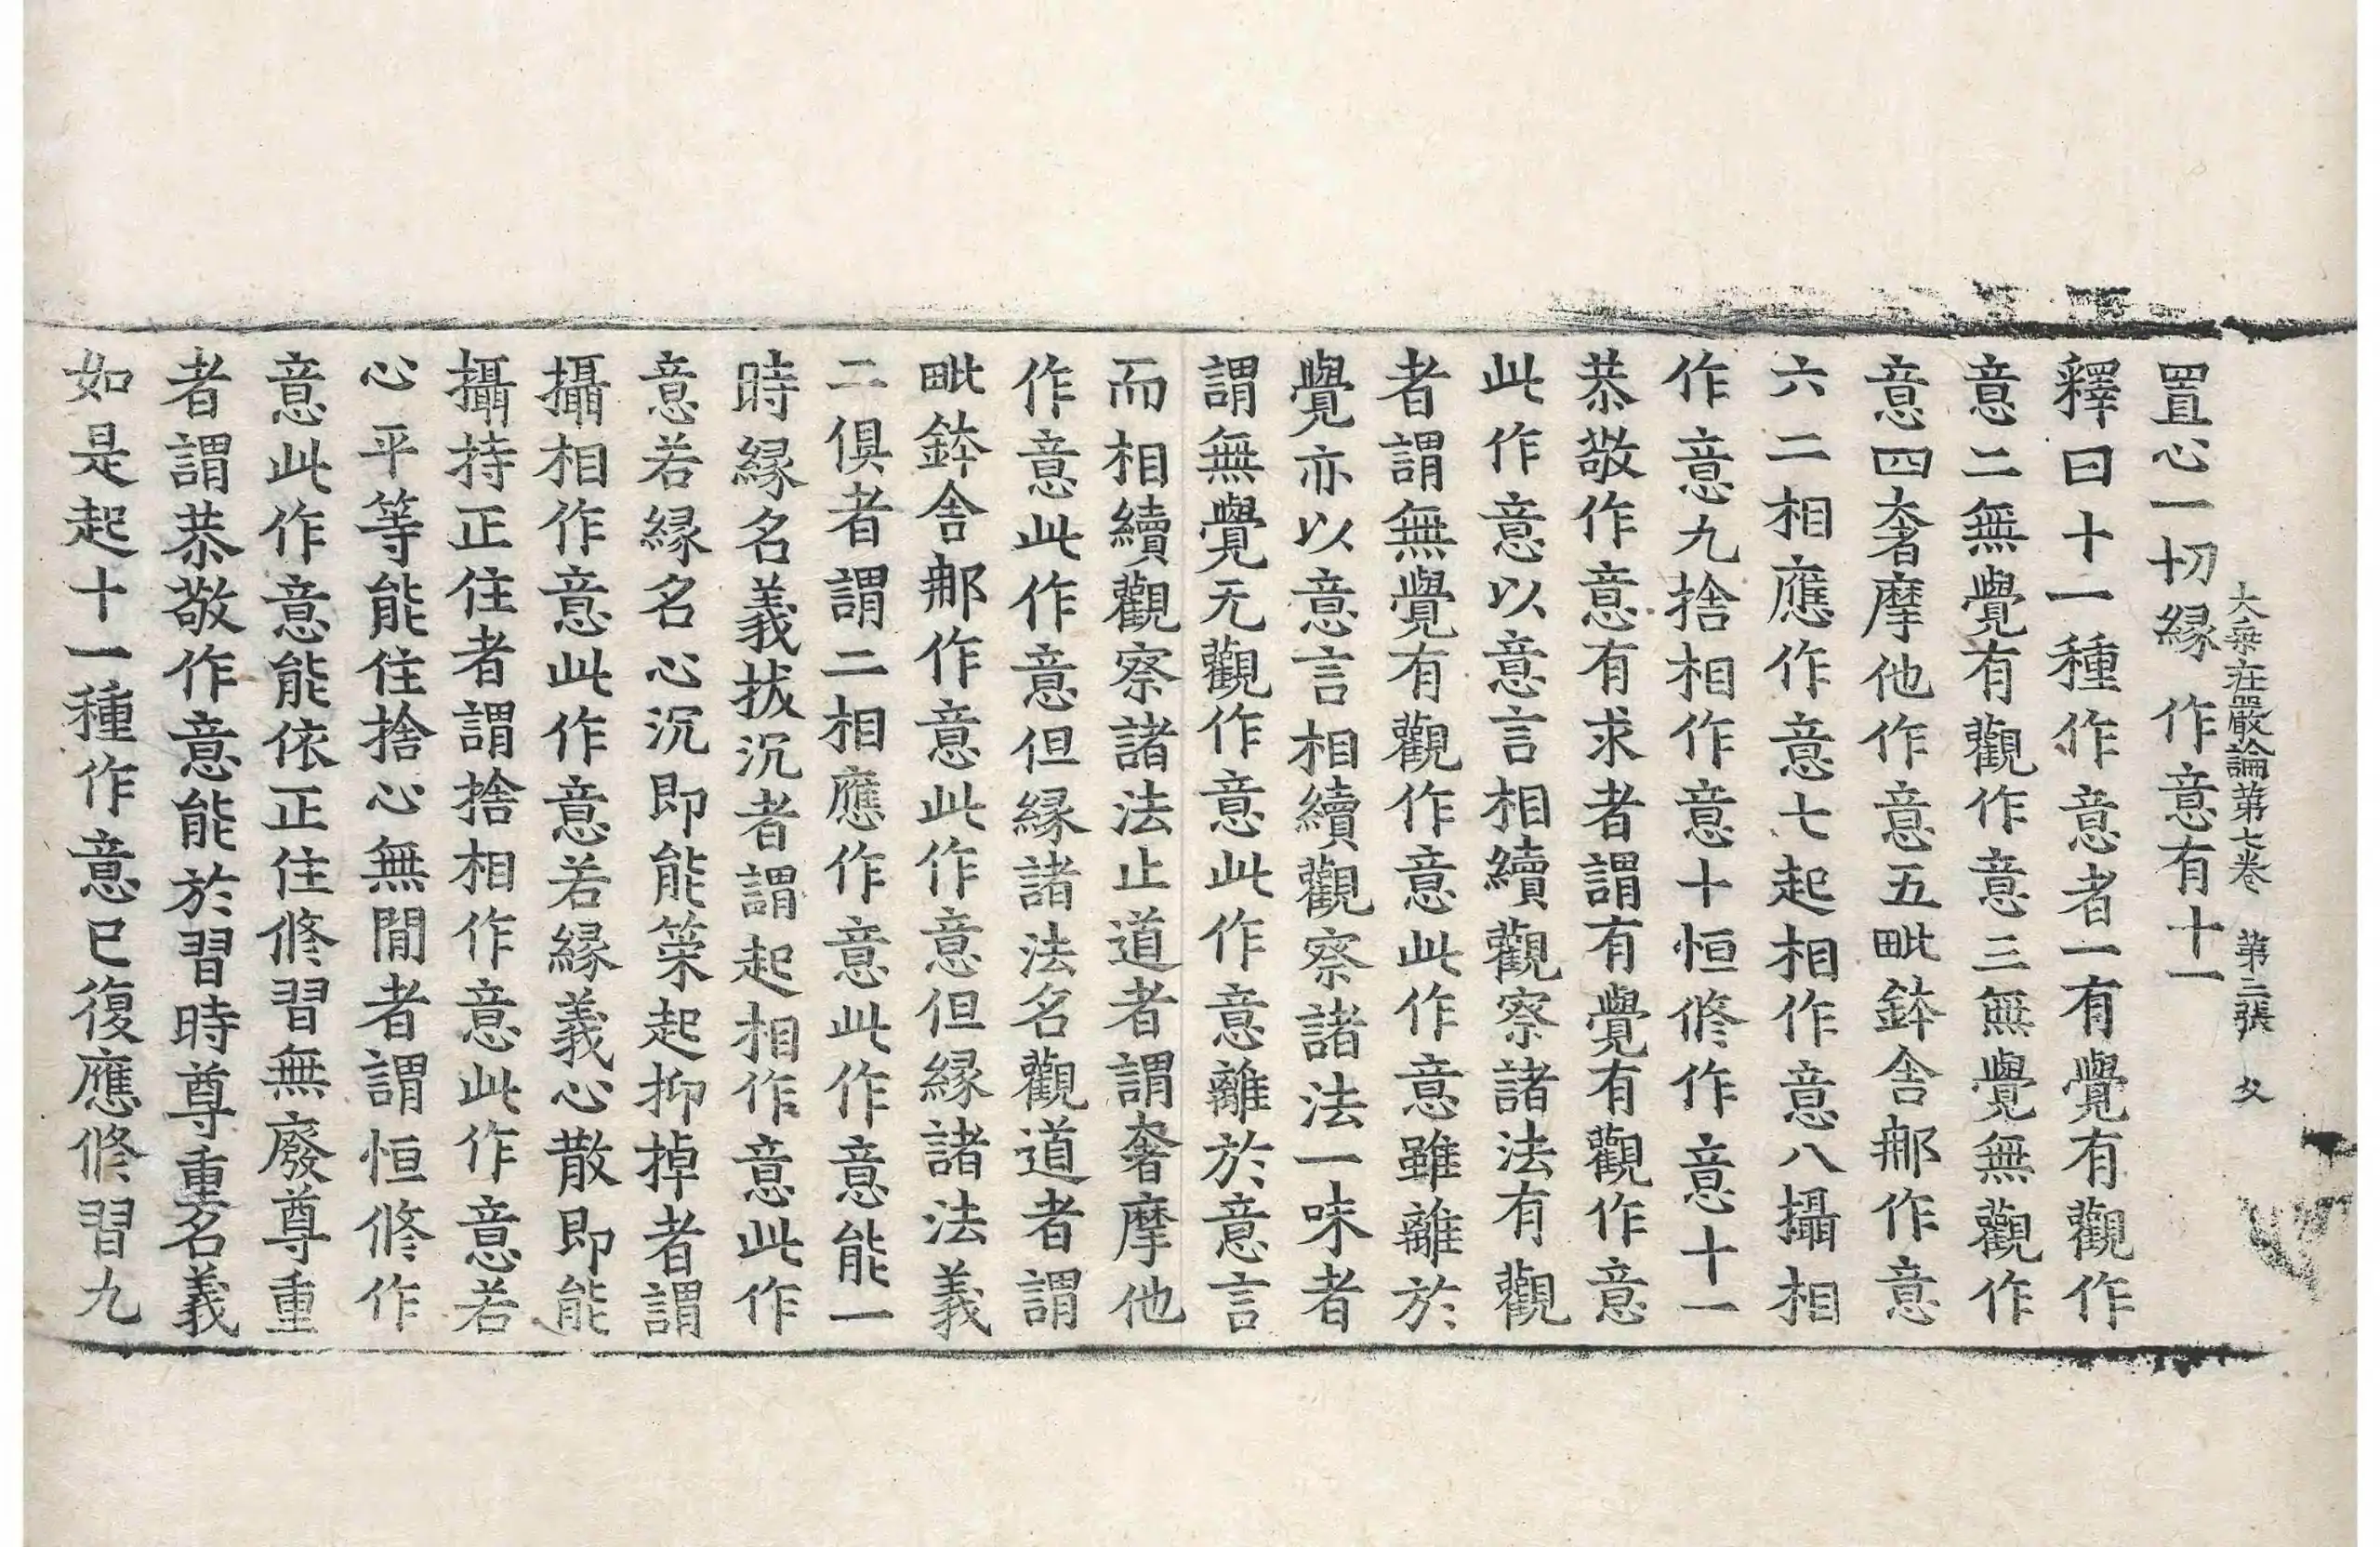 大乗在嚴論第七卷 第二張 攵
置心一切縁 作意有十一
釋曰十一種作意者一有覺有觀作
意二無覺有觀作意三無覺無觀作
意四奢摩他作意五毗鉢舍那作意
六二相應作意七起相作意八攝相
作意九捨相作意十恒修作意十一
恭敬作意有求者謂有覺有觀作意
此作意以意言相續觀察諸法有觀
者謂無覺有觀作意此作意雖離於
覺亦以意言相續觀察諸法一味者
謂無覺无觀作意此作意離於意言
而相續觀察諸法止道者謂奢摩他
作意此作意但縁諸法名觀道者謂
毗鉢舍那作意此作意但縁諸法義
二俱者謂二相應作意此作意能一
時縁名義拔沉者謂起相作意此作
意若縁名心沉即能策起抑掉者謂
攝相作意此作意若縁義心散即能
攝持正住者謂捨相作意此作意若
心平等能住捨心無閒者謂恒修作
意此作意能依正住修習無廢尊重
者謂恭敬作意能於習時尊重名義
如是起十一種作意已復應修習九